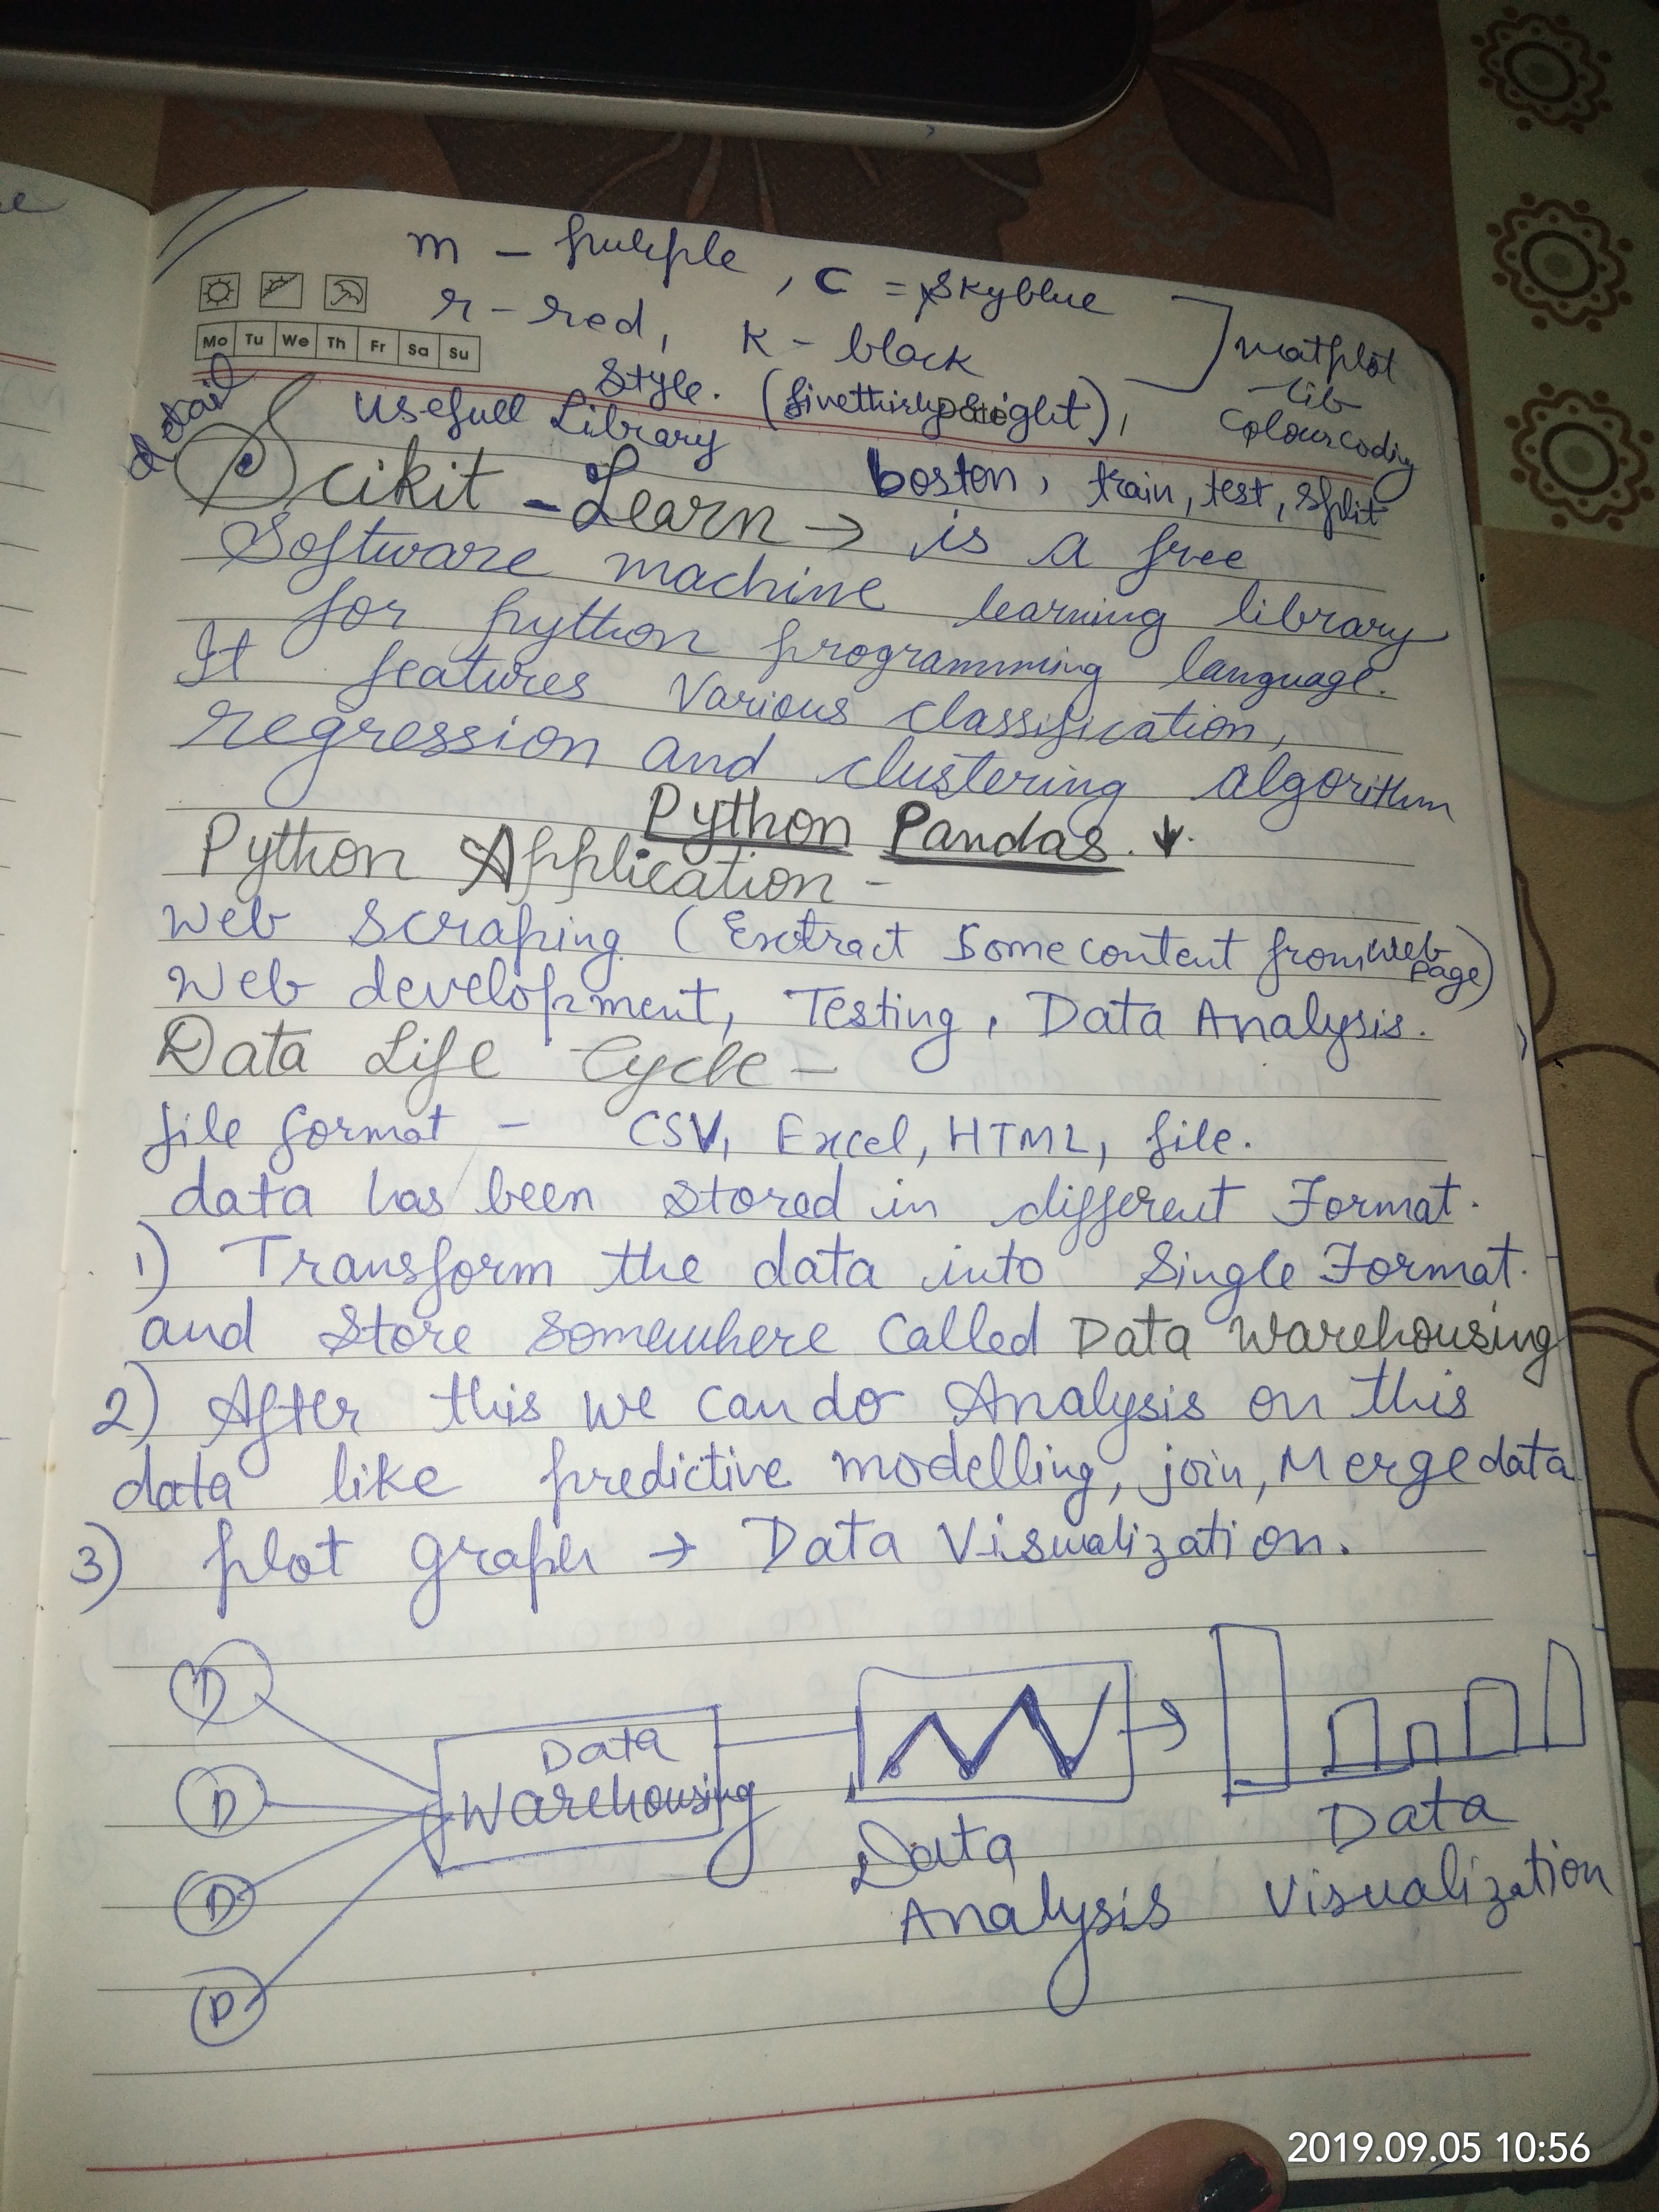 m - purple , c = skyblue
r - red, k - black
matplot
lib
Colourcoding
Mo Tu We Th Fr Sa Su
style. (fivethirtyeight),
detail
Usefull Library
boston, train, test, split
Scikit - Learn → is a free
Software machine learning library
for python programming language.
It features Various classification,
regression and clustering algorithm
Python Pandas. ↓
Python Application -
Web Scraping (Extract Some content from web page)
Web development, Testing, Data Analysis.
Data Life Cycle -
file format - CSV, Excel, HTML, file.
data has been stored in different Format.
1) Transform the data into Single Format.
and store somewhere called Data Warehousing
2) After this we can do Analysis on this
data like predictive modelling, join, Merge data
3) plot graph → Data Visualization.
D
D
D
D
Data
Warehousing
Data
Analysis
Data
Visualization
2019.09.05 10:56